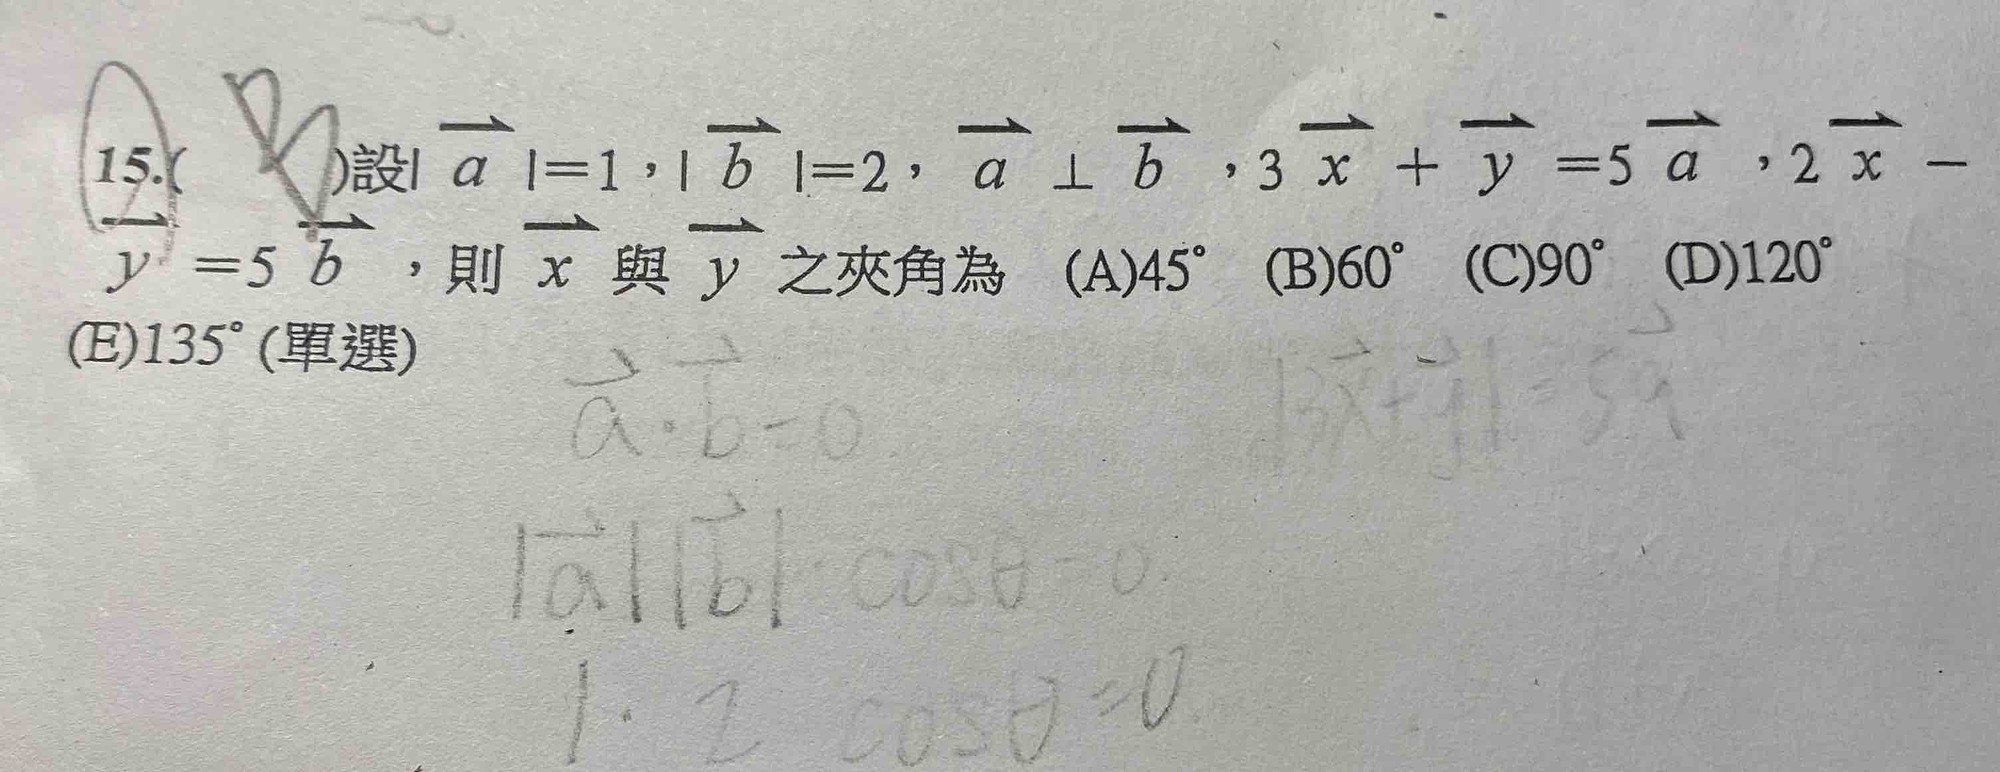 15.( )設| a⃗ |=1，| b⃗ |=2， a⃗ ⊥ b⃗ ，3 x⃗ + y⃗ =5 a⃗ ，2 x⃗ −
y⃗ =5 b⃗ ，則 x⃗ 與 y⃗ 之夾角為 (A)45° (B)60° (C)90° (D)120°
(E)135° (單選)
a⃗·b⃗=0 |3x⃗+y⃗|=5a⃗
|a⃗||b⃗| cosθ=0
1·2 cosθ=0